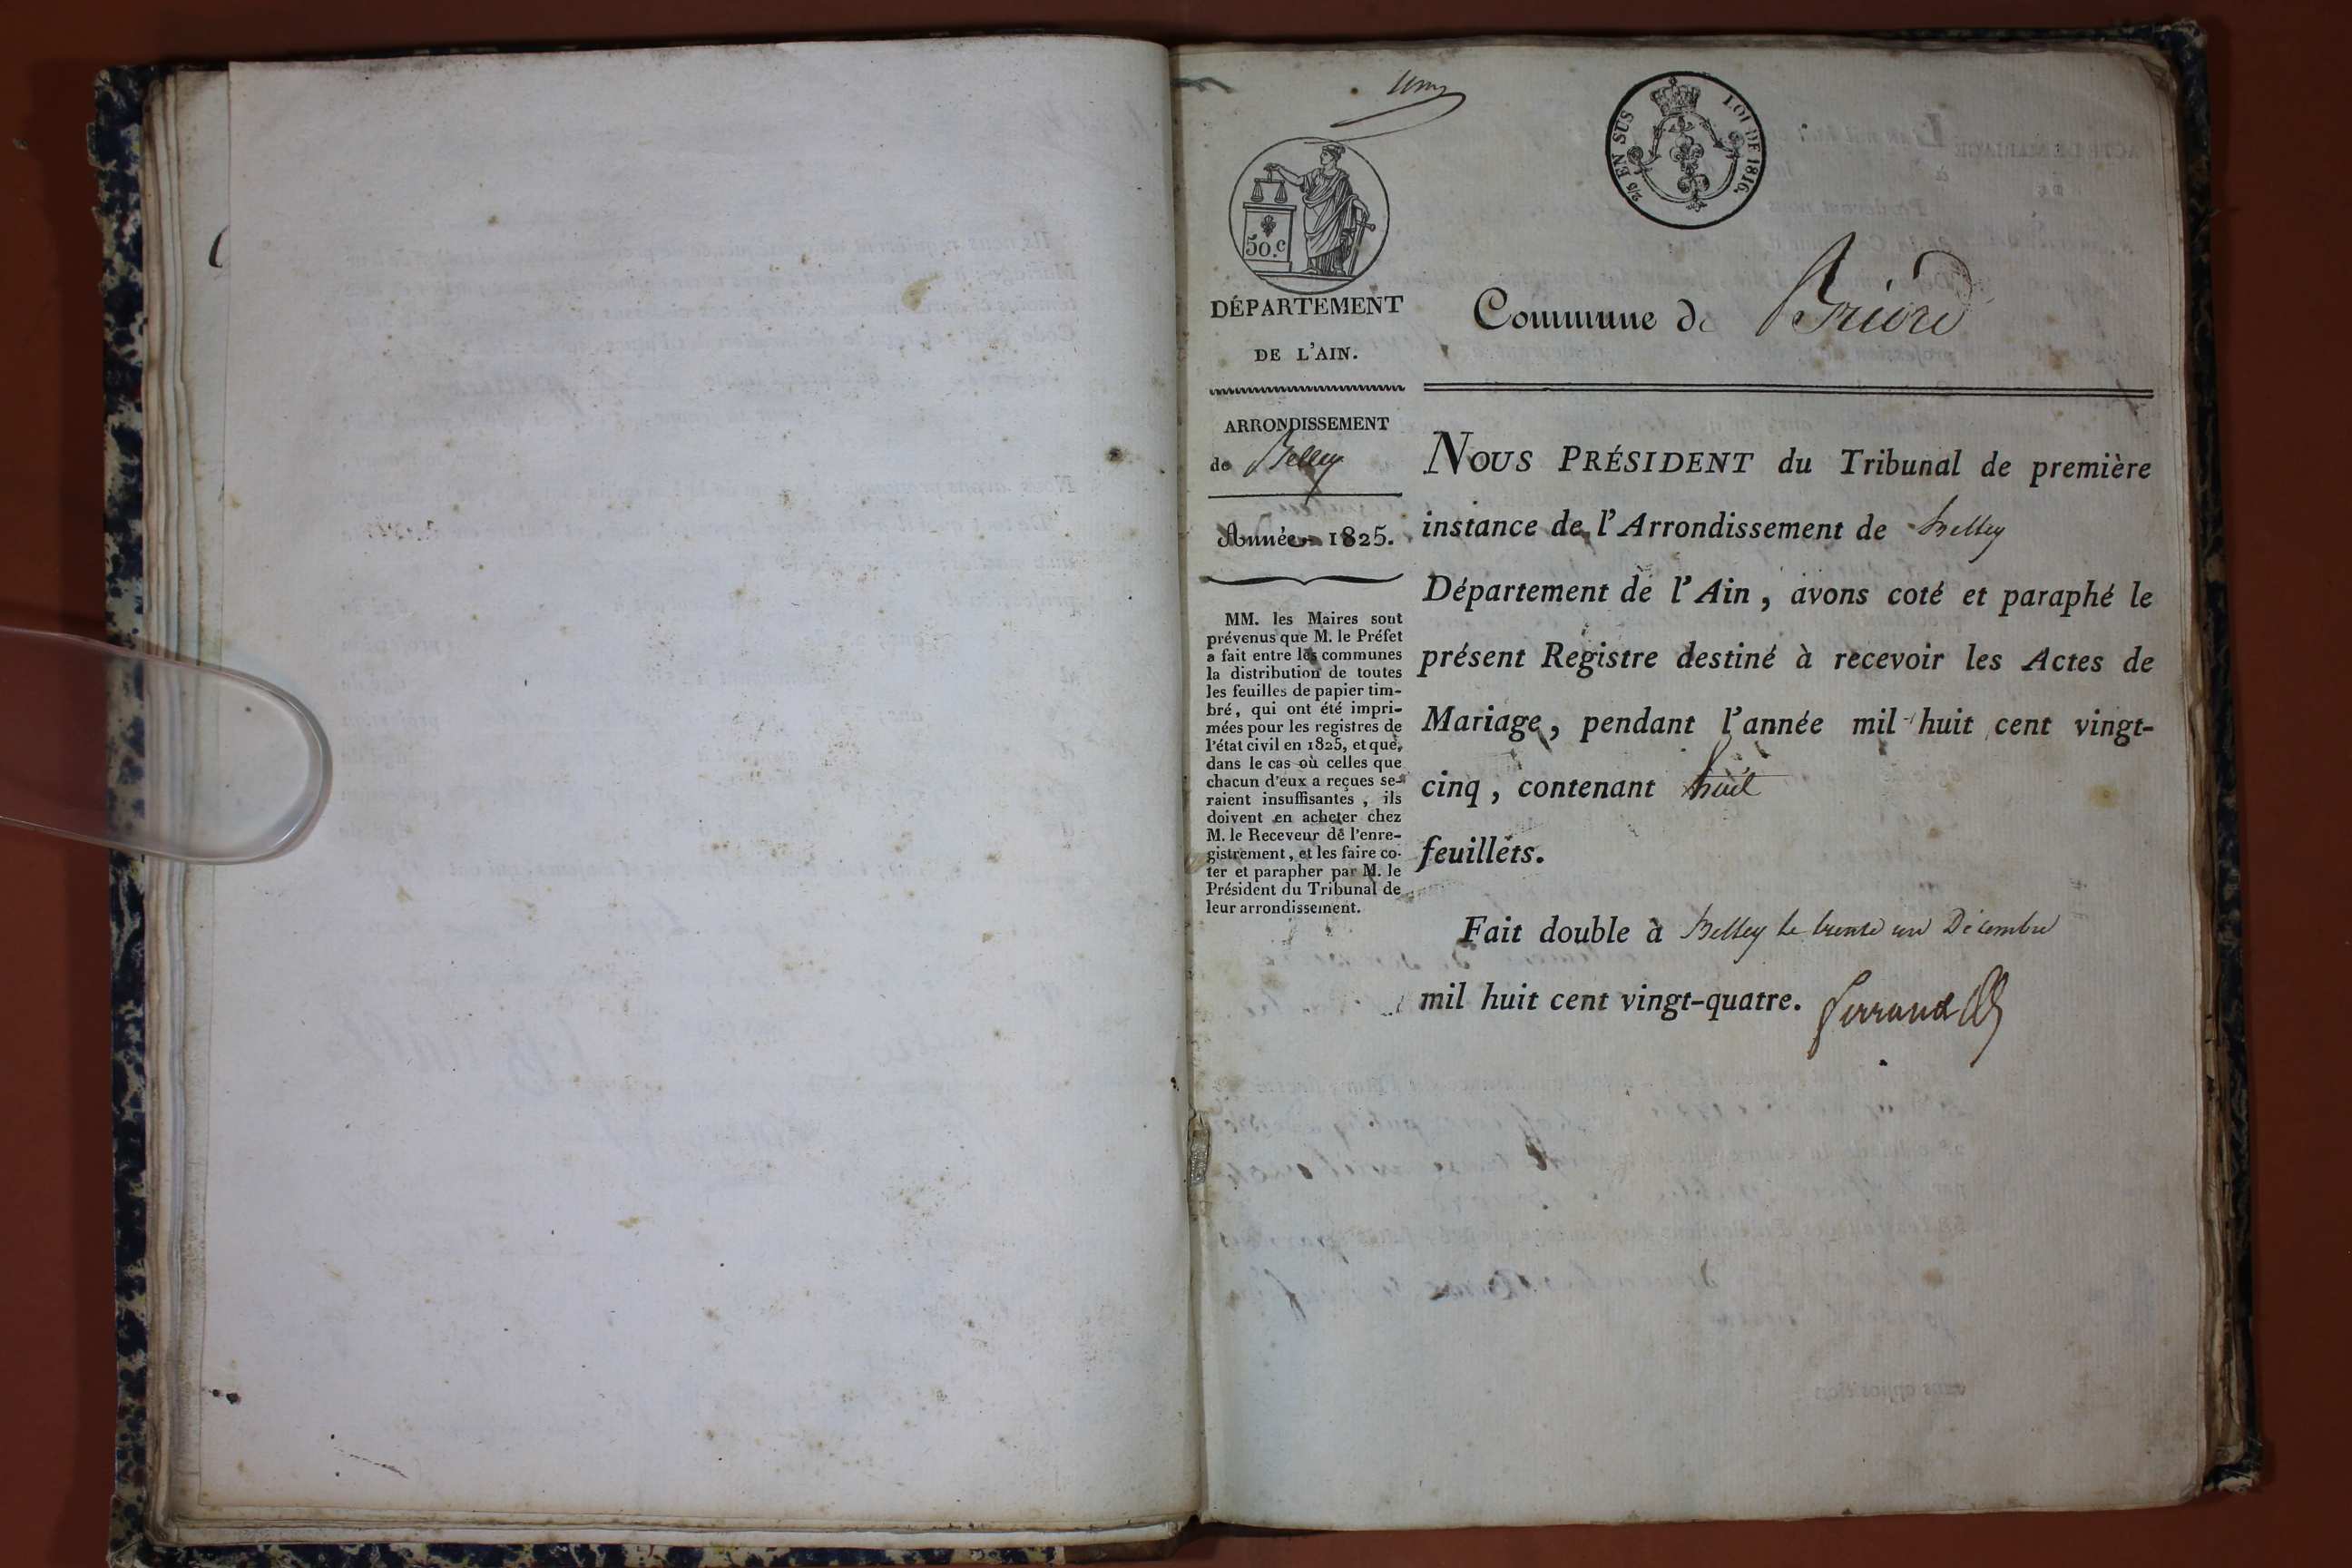 2/5 EN SUS
LOI DE 1816.
50.c
DÉPARTEMENT
DE L'AIN.
Commune de Briord
ARRONDISSEMENT
de Belley
Année 1825.
MM. les Maires sont
prévenus que M. le Préfet
a fait entre les communes
la distribution de toutes
les feuilles de papier tim-
bré, qui ont été impri-
mées pour les registres de
l'état civil en 1825, et que,
dans le cas où celles que
chacun d'eux a reçues se-
raient insuffisantes, ils
doivent en acheter chez
M. le Receveur de l'enre-
gistrement, et les faire co-
ter et parapher par M. le
Président du Tribunal de
leur arrondissement.
NOUS PRÉSIDENT du Tribunal de première
instance de l'Arrondissement de Belley
Département de l'Ain, avons coté et paraphé le
présent Registre destiné à recevoir les Actes de
Mariage, pendant l'année mil huit cent vingt-
cinq, contenant huit
feuillets.
Fait double à Belley le trente un Décembre
mil huit cent vingt-quatre.